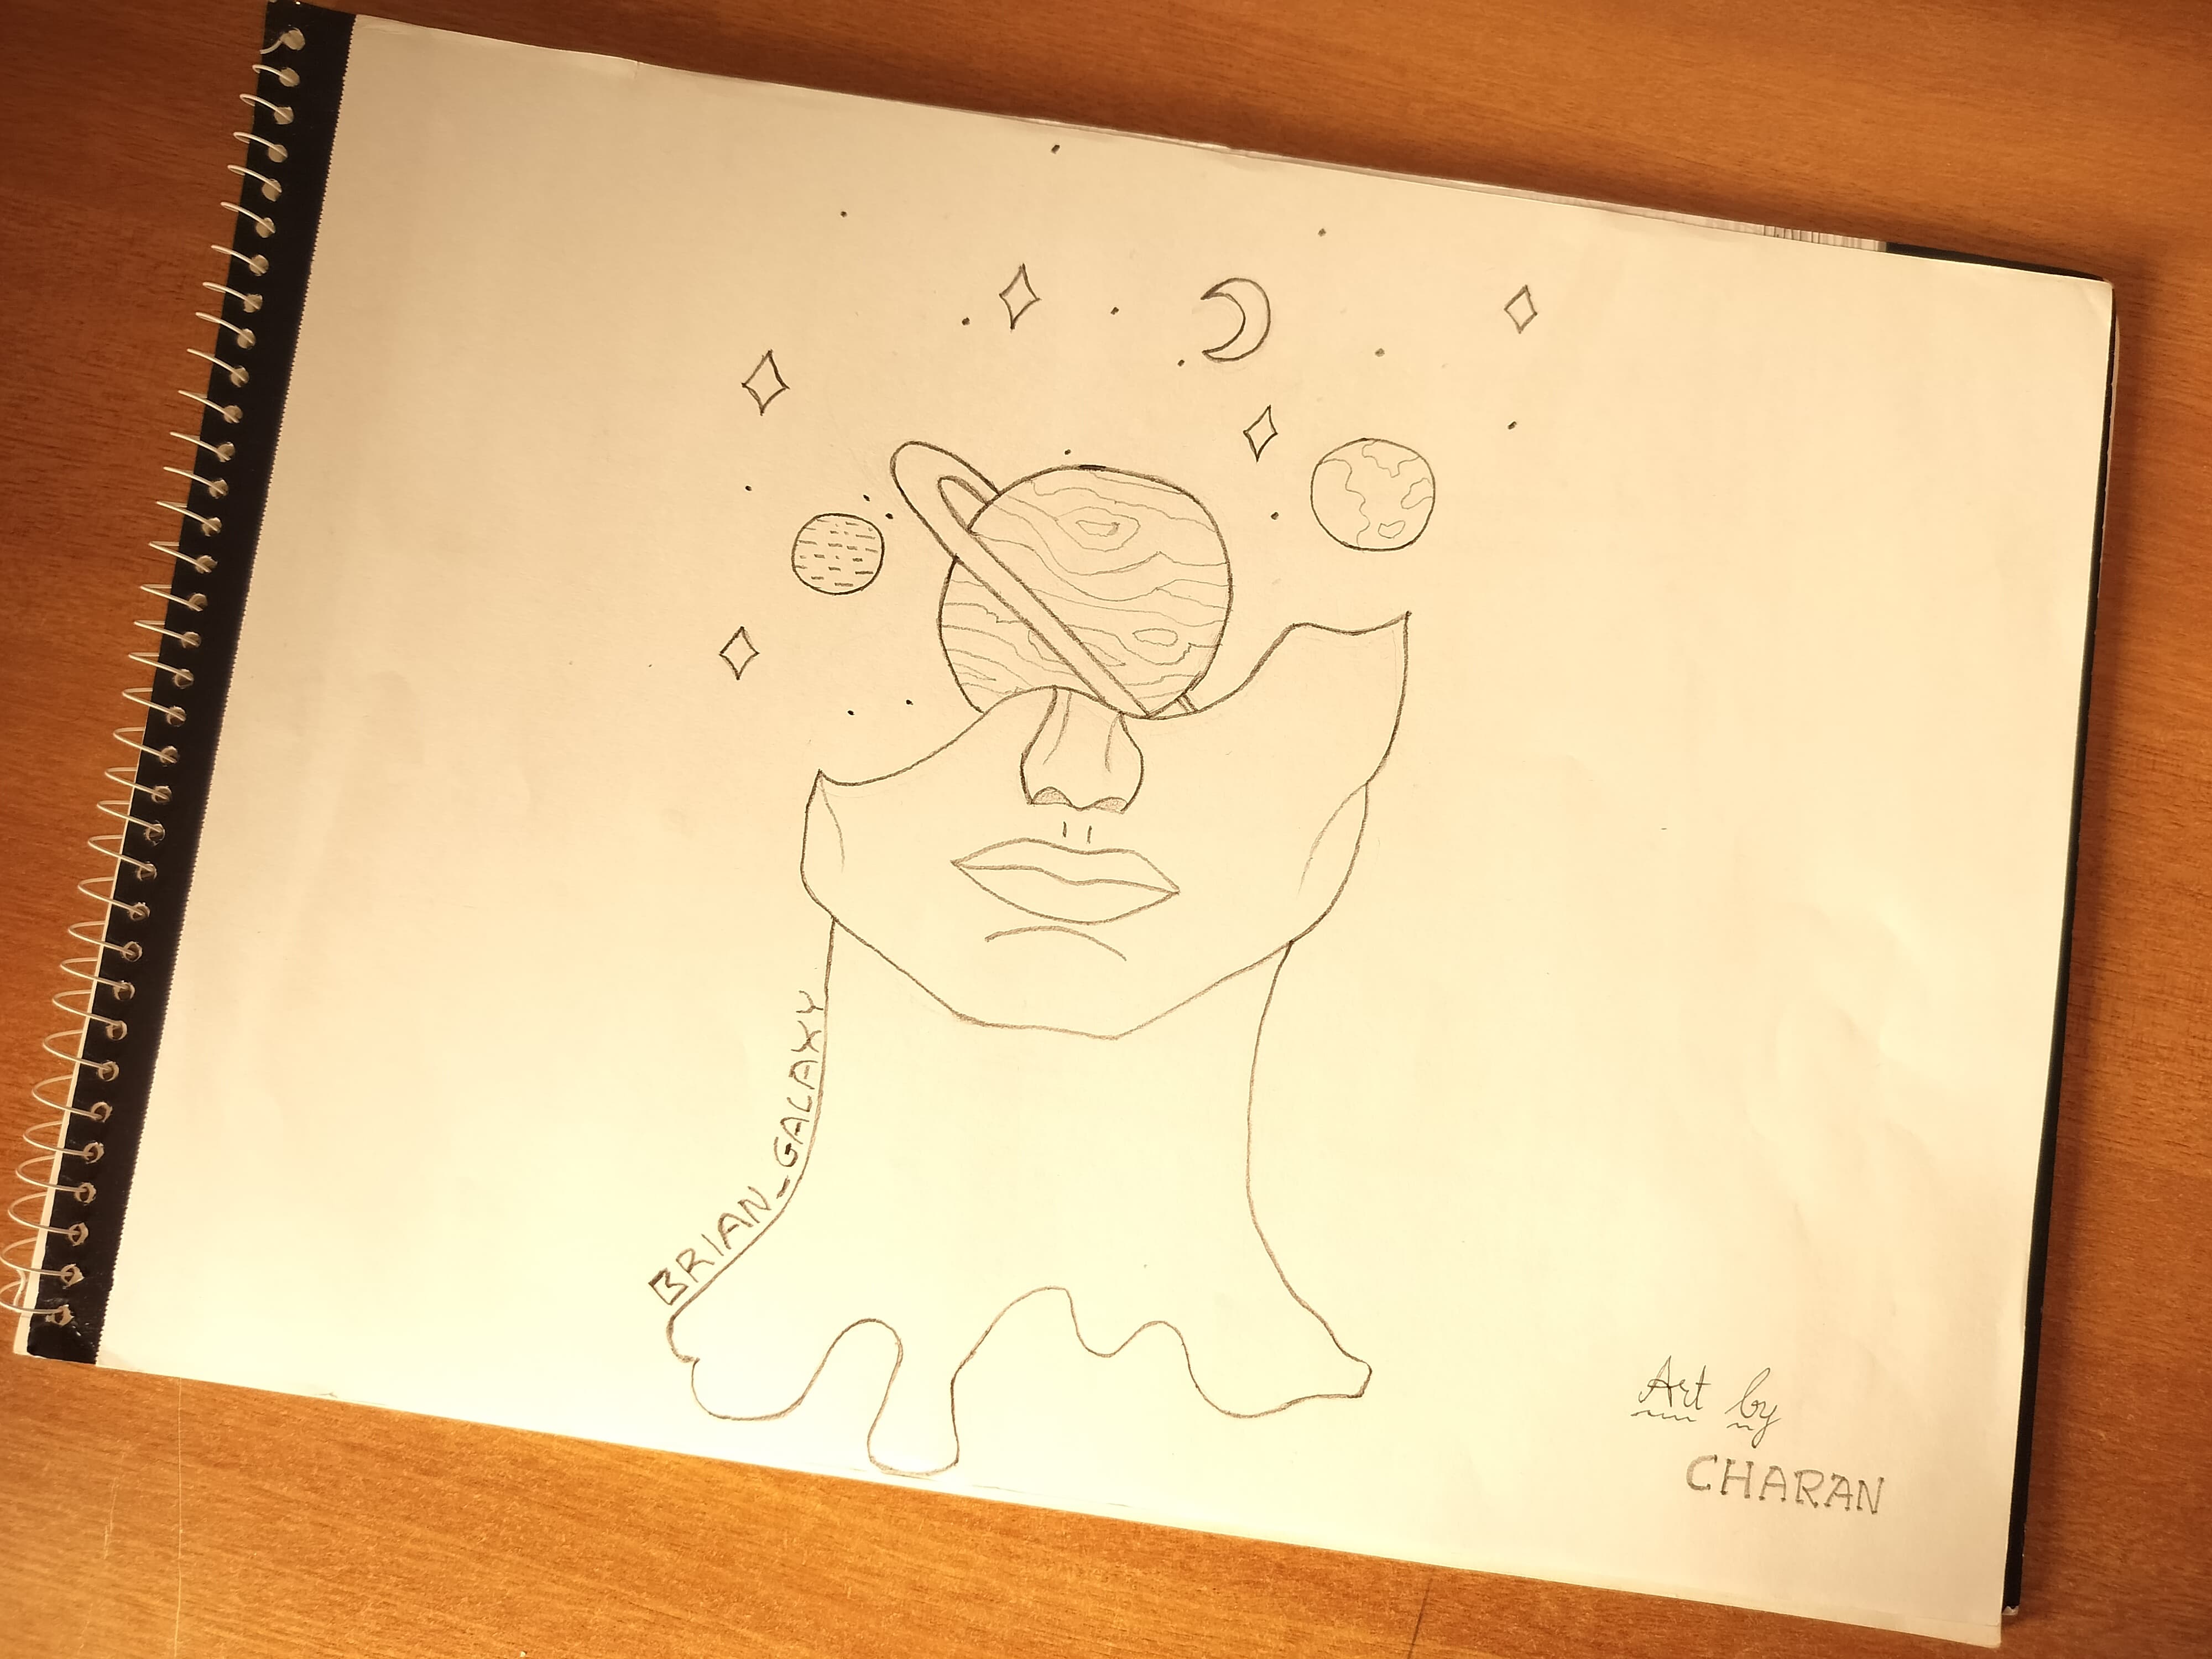 BRIAN_GALAXY
Art by
CHARAN